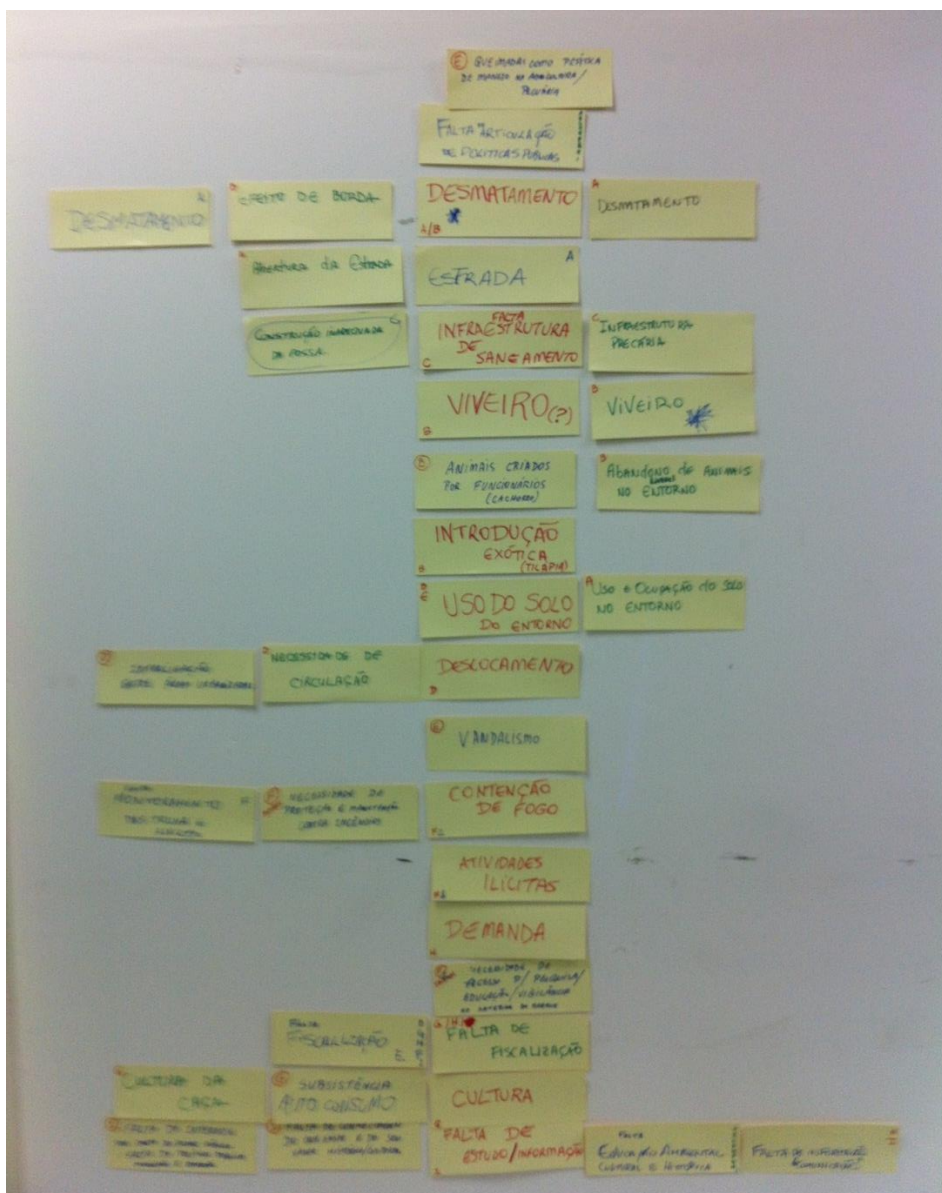 E QUEIMADA COMO PRÁTICA
DE MANEJO NA AGRICULTURA/
PECUÁRIA
FALTA DE ARTICULAÇÃO
DE POLÍTICAS PÚBLICAS
DESMATAMENTO
EFEITO DE BORDA
DESMATAMENTO
A/B
A
DESMATAMENTO
ABERTURA DA ESTRADA
A
ESTRADA
C
CONSTRUÇÃO INADEQUADA
DE FOSSA
FALTA
INFRAESTRUTURA
DE
SANEAMENTO
C
C
INFRAESTRUTURA
PRECÁRIA
VIVEIRO(?)
B
B
VIVEIRO
ANIMAIS CRIADOS
POR FUNCIONÁRIOS
(CACHORRO)
ABANDONO DE ANIMAIS
NO ENTORNO
INTRODUÇÃO
EXÓTICA
(TILÁPIA)
B
USO DO SOLO
DO ENTORNO
A
USO E OCUPAÇÃO DO SOLO
NO ENTORNO
INTERLIGAÇÃO
ENTRE ÁREAS URBANIZADAS
D
NECESSIDADE DE
CIRCULAÇÃO
DESLOCAMENTO
D
VANDALISMO
MONITORAMENTO
NECESSIDADE DE
PROTEÇÃO E MANUTENÇÃO
CONTRA INCÊNDIO
CONTENÇÃO
DE FOGO
ATIVIDADES
ILÍCITAS
DEMANDA
NECESSIDADE DE
ACESSO P/ PESQUISA/
EDUCAÇÃO/VIGILÂNCIA
FALTA
FISCALIZAÇÃO
FALTA DE
FISCALIZAÇÃO
CULTURA DA
CAÇA
SUBSISTÊNCIA
AUTO CONSUMO
CULTURA
FALTA DE
FALTA DE
FALTA DE
ESTUDO/INFORMAÇÃO
FALTA
EDUCAÇÃO AMBIENTAL
CULTURAL E HISTÓRICA
FALTA DE INFORMAÇÃO